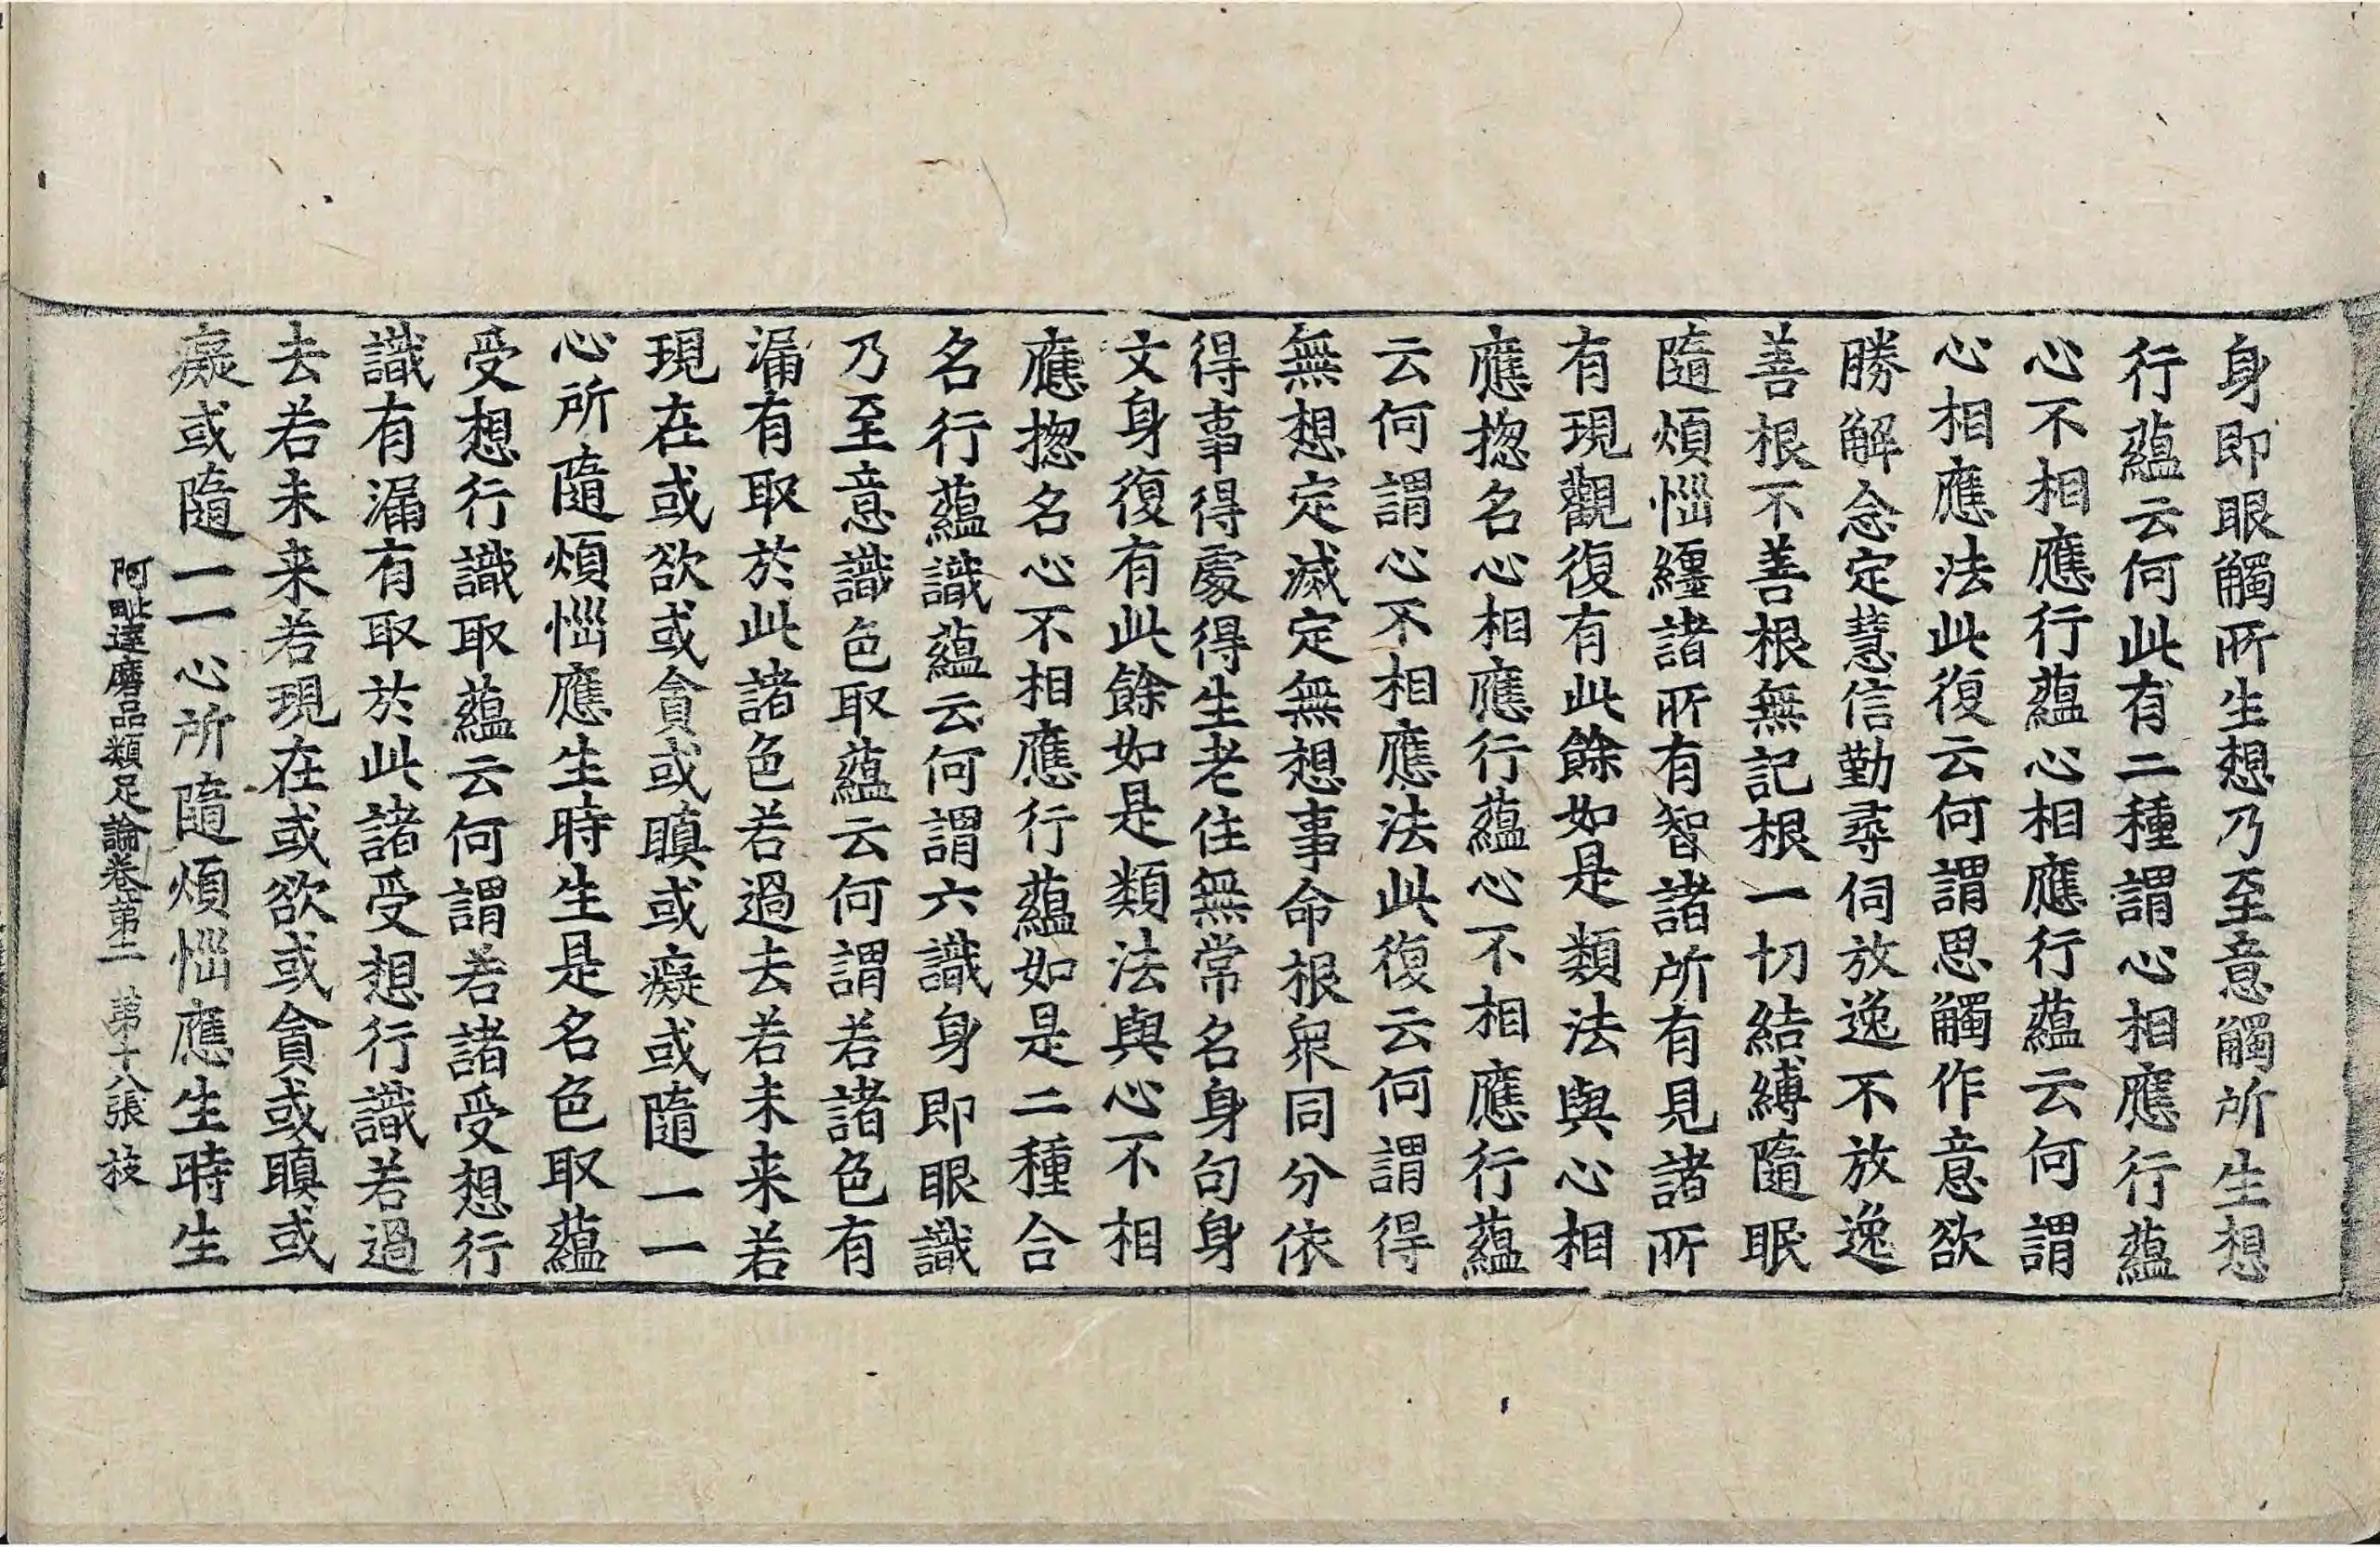 身即眼觸所生想乃至意觸所生想
行蘊云何此有二種謂心相應行蘊
心不相應行蘊心相應行蘊云何謂
心相應法此復云何謂思觸作意欲
勝解念定慧信勤尋伺放逸不放逸
善根不善根無記根一切結縛隨眠
隨煩惱纏諸所有智諸所有見諸所
有現觀復有此餘如是類法與心相
應揔名心相應行蘊心不相應行蘊
云何謂心不相應法此復云何謂得
無想定滅定無想事命根衆同分依
得事得處得生老住無常名身句身
文身復有此餘如是類法與心不相
應揔名心不相應行蘊如是二種合
名行蘊識蘊云何謂六識身即眼識
乃至意識色取蘊云何謂若諸色有
漏有取於此諸色若過去若未来若
現在或欲或貪或瞋或癡或隨一一
心所隨煩惱應生時生是名色取蘊
受想行識取蘊云何謂若諸受想行
識有漏有取於此諸受想行識若過
去若未来若現在或欲或貪或瞋或
癡或隨一一心所隨煩惱應生時生
阿毗達磨品類足論卷第二 第十八張 枝